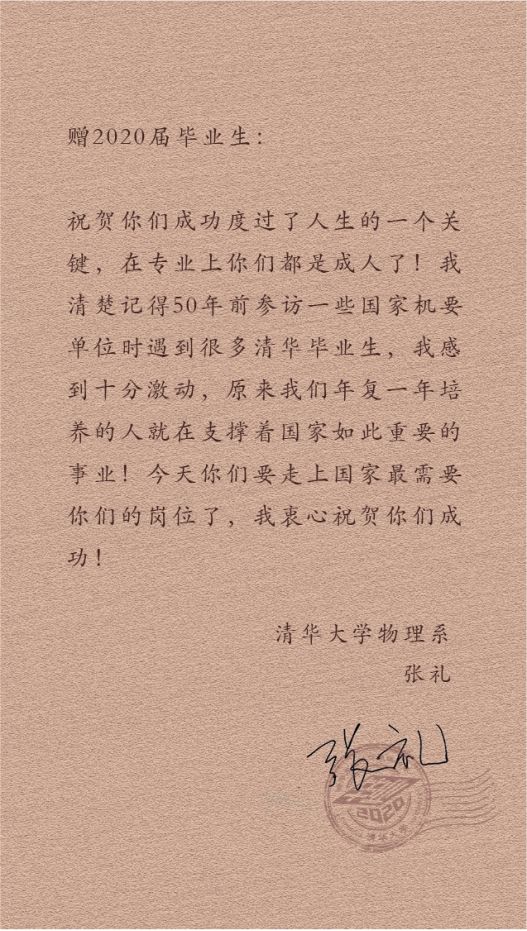 赠2020届毕业生：
祝贺你们成功度过了人生的一个关
键，在专业上你们都是成人了！我
清楚记得50年前参访一些国家机要
单位时遇到很多清华毕业生，我感
到十分激动，原来我们年复一年培
养的人就在支撑着国家如此重要的
事业！今天你们要走上国家最需要
你们的岗位了，我衷心祝贺你们成
功！
清华大学物理系
张礼
张礼
2020
清华大学